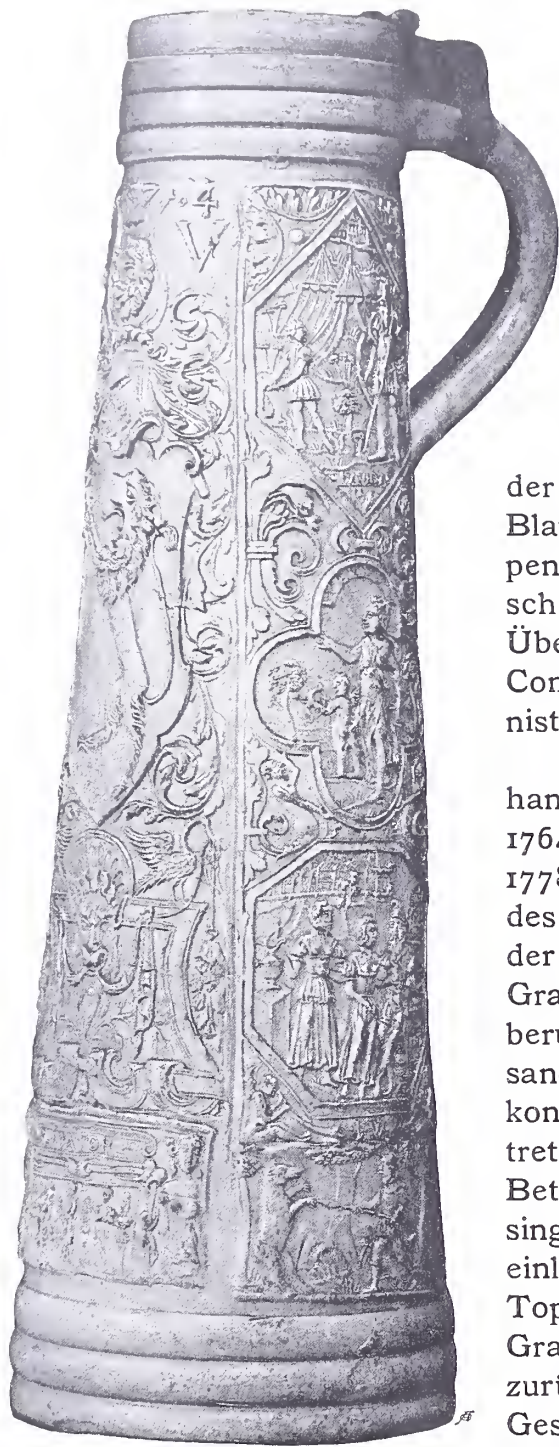 V
der
Bla
pen
sch
Übe
Con
nist
han
176
1778
des
der
Gra
beru
san
kon
tret
Bet
sing
einl
Top
Gra
zuri
Ges